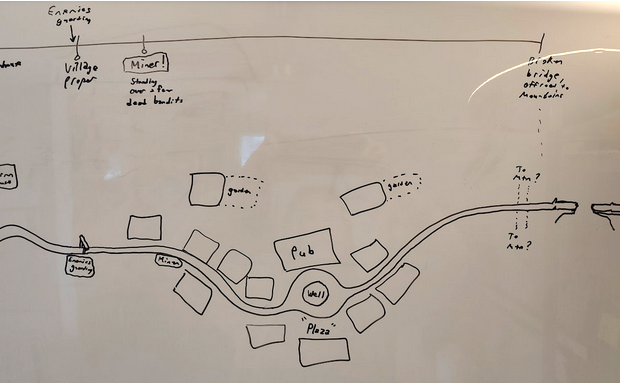 Enemies
guarding
Village
proper
Miner!
Standing
over a few
dead bandits
Broken
bridge,
offroad to
Mountains
garden
garden
To
Mtn?
Pub
Enemies
guarding
Miner
Well
To
Mtn?
"Plaza"